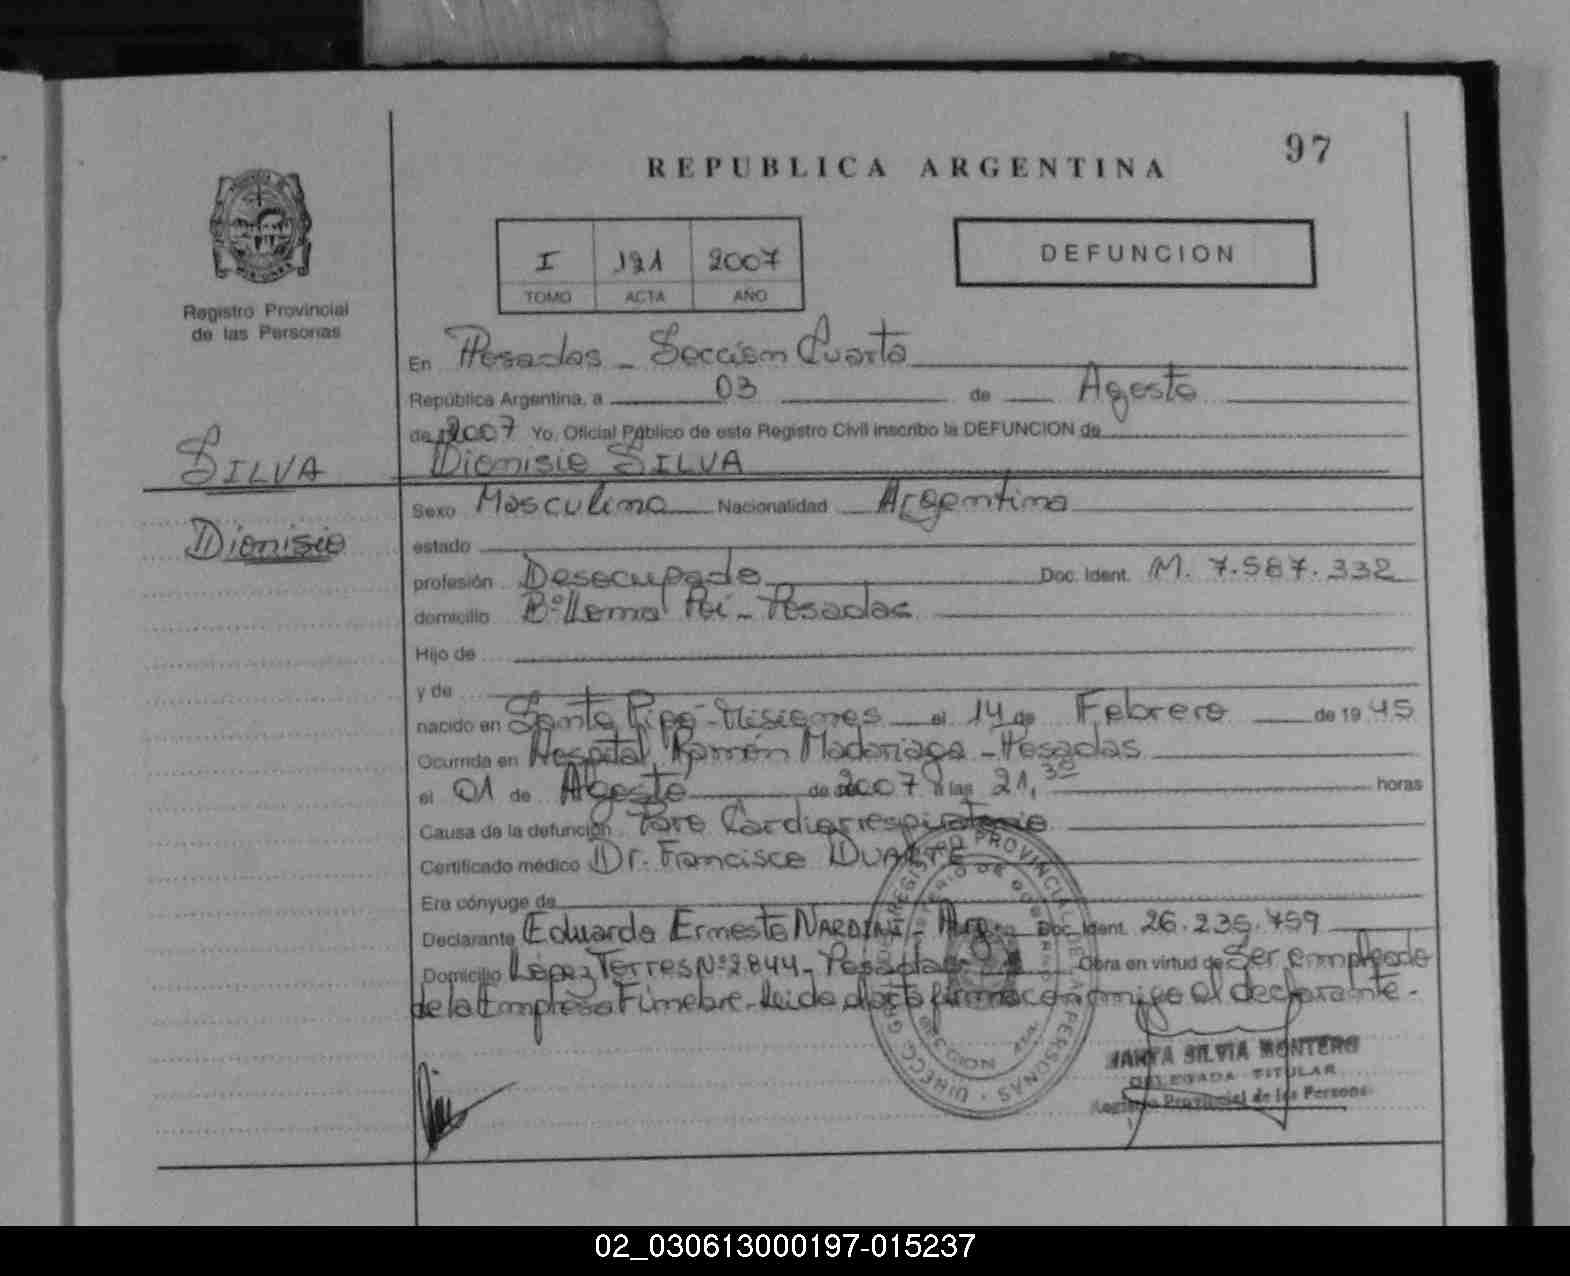 97
REPUBLICA ARGENTINA
I 121 2007
TOMO ACTA AÑO
DEFUNCION
Registro Provincial
de las Personas
En Posadas - Seccion Cuarta
República Argentina, a 03 de Agosto
de 2007 Yo, Oficial Público de este Registro Civil inscribo la DEFUNCION de
SILVA
Dionisio SILVA
Dionisio
Sexo Masculino Nacionalidad Argentina
estado
profesión Desocupado Doc. Ident. M. 7.587.332
domicilio B° Loma Poi - Posadas
Hijo de
y de
nacido en Santo Pipó - Misiones el 14 de Febrero de 19 45
Ocurrida en Hospital Ramón Madariaga - Posadas
el 01 de Agosto de 2007 a las 21,30 horas
Causa de la defunción Paro Cardiorrespiratorio
Certificado médico Dr. Francisco DUARTE
Era cónyuge de
Declarante Eduardo Ernesto NARDINI - Arg. Doc. Ident. 26.235.759
Domicilio López Torres N° 2.844 - Posadas Obra en virtud de Ser empleado
de la Empresa Fúnebre. Leida el acta firma conmigo el declarante.-
SILVIA MONTERO
DELEGADA TITULAR
Registro Provincial de las Personas
02_030613000197-015237